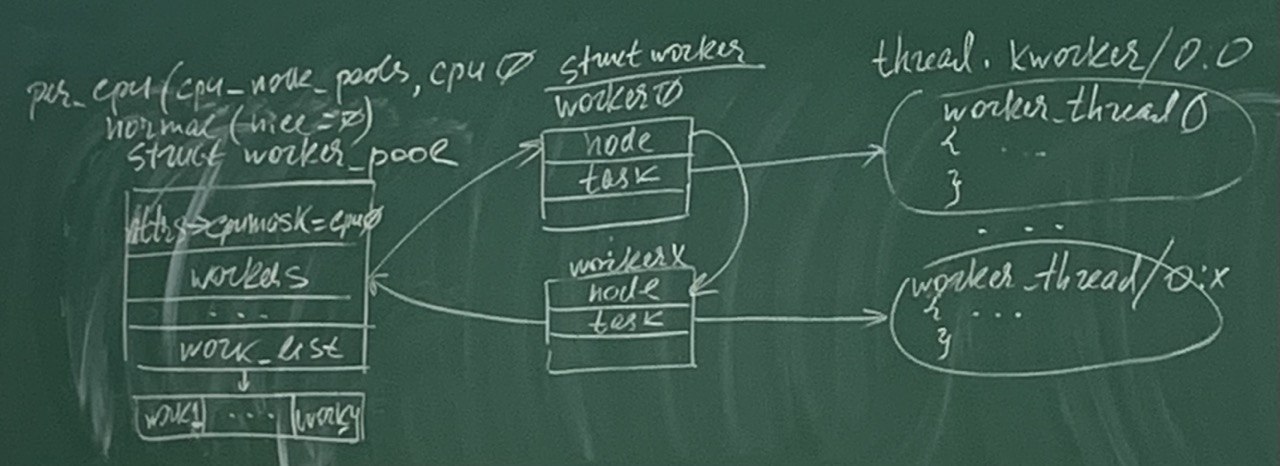 per_cpu(cpu_node_pools, cpu 0
normal (nice=0)
struct worker_pool
attrs->cpumask=cpu0
workers
...
work_list
work1 ... worky
struct worker
worker0
node
task
workerx
node
task
thread. kworker/0:0
worker_thread()
{ ...
}
...
worker_thread/0:x
{ ...
}